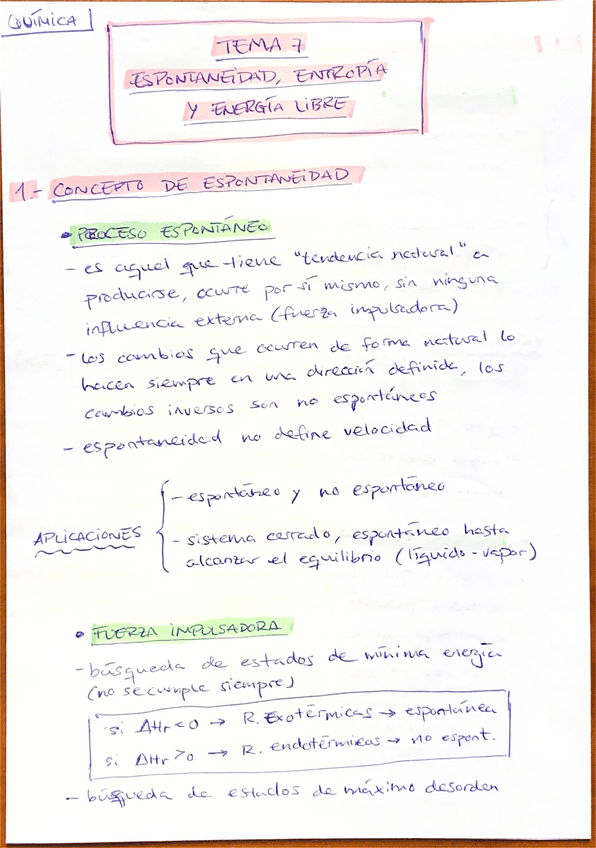 QUÍMICA
TEMA 7
ESPONTANEIDAD, ENTROPÍA
Y ENERGÍA LIBRE
1.- CONCEPTO DE ESPONTANEIDAD
• PROCESO ESPONTÁNEO
- es aquel que tiene "tendencia natural" a
producirse, ocurre por sí mismo, sin ninguna
influencia externa (fuerza impulsadora)
- los cambios que ocurren de forma natural lo
hacen siempre en una dirección definida, los
cambios inversos son no espontáneos
- espontaneidad no define velocidad
APLICACIONES
- espontáneo y no espontáneo
- sistema cerrado, espontáneo hasta
alcanzar el equilibrio (líquido-vapor)
• FUERZA IMPULSADORA
- búsqueda de estados de mínima energía
(no se cumple siempre)
si ΔHr<0 → R. Exotérmicas → espontánea
si ΔHr>0 → R. endotérmicas → no espont.
- búsqueda de estados de máximo desorden